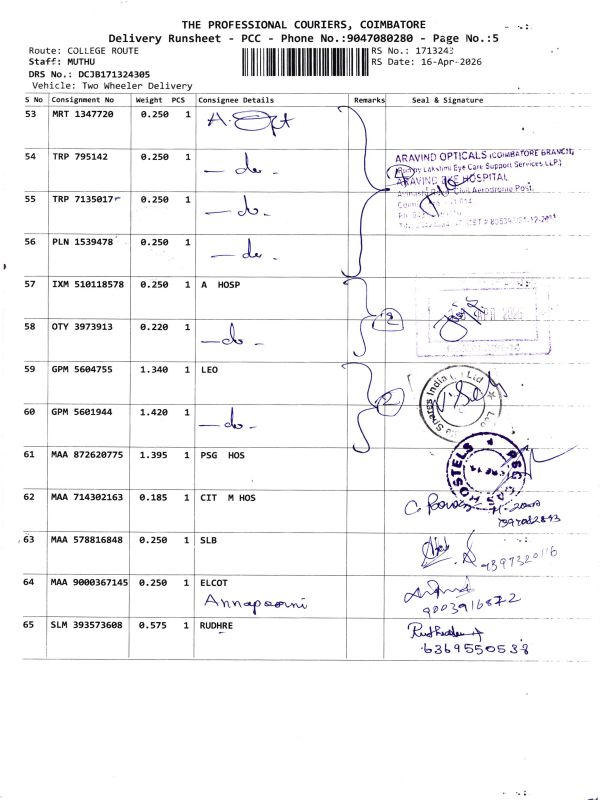 THE PROFESSIONAL COURIERS, COIMBATORE
Delivery Runsheet - PCC - Phone No.:9047080280 - Page No.:5
Route: COLLEGE ROUTE
RS No.: 1713243
Staff: MUTHU
RS Date: 16-Apr-2026
DRS No.: DCJB171324305
Vehicle: Two Wheeler Delivery
S No Consignment No Weight PCS Consignee Details Remarks Seal & Signature
53 MRT 1347720 0.250 1 A. Opt
54 TRP 795142 0.250 1 - do -
ARAVIND OPTICALS (COIMBATORE BRANCH)
Lakshmi Eye Care Support Services LLP)
ARAVIND EYE HOSPITAL
Civil Aerodrome Post,
55 TRP 7135017 0.250 1 - do -
56 PLN 1539478 0.250 1 - do -
57 IXM 510118578 0.250 1 A HOSP
2
58 OTY 3973913 0.220 1 - do -
59 GPM 5604755 1.340 1 LEO
2
Spares India Ltd
60 GPM 5601944 1.420 1 - do -
61 MAA 872620775 1.395 1 PSG HOS
PSG CAS HOSTELS
62 MAA 714302163 0.185 1 CIT M HOS
63 MAA 578816848 0.250 1 SLB
64 MAA 9000367145 0.250 1 ELCOT
Annapoorni
9003916872
65 SLM 393573608 0.575 1 RUDHRE
6369550538